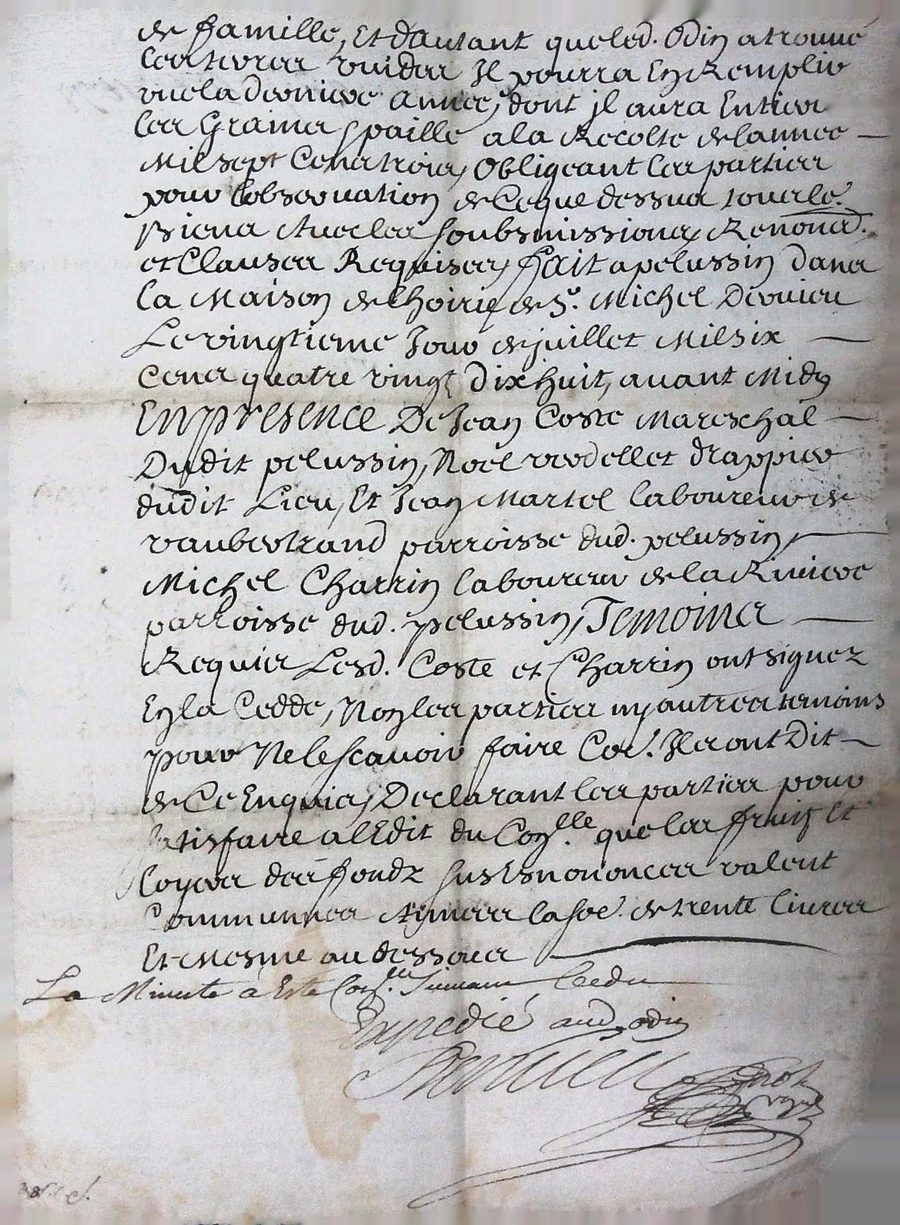 de famille, Et dautant queled. Odin a trouué
les terres vuides Il pourra En Remplir
vue la derniere année, dont jl aura Entier
les Grains paille a la Recolte de lannee
Mil sept Cens trois, Obligeant les parties
pour lobseruation de Ceque dessus tous le.
biens Auec les soubsmissions, Renond.
et Clauses Requises, fait a pelussin dans
la Maison de lhoirie de Sr. Michel Dervieu
Le vingtieme Jour de juillet Mil six
Cens quatre vingt dix huit, auant Midy
En presence De Jean Coste Mareschal
Dudit pelussin, Noel verdellet drappier
dudit Lieu, Et Jean Martel laboureur de
vaubertrand parroisse dud. pelussin,
Michel Charrin laboureur de la Riuiere
parroisse dud. pelussin, Temoins
Requis Lesd. Coste et Charrin ont signez
En la Cedde, Non les parties ny autres temoins
pour Ne le scauoir faire Co. Ils ont Dit
de Ce Enquis, Declarant les parties pour
satisfaire a lEdit du Con.lle que les fruits Et
loyers des fondz susEsnoncez valent
Communnes Annees la so. de trente liures
Et Mesme au dessous
La Minute à Este Con.lle Suiuant Leedit
Expedié aud. odin
Dervieu